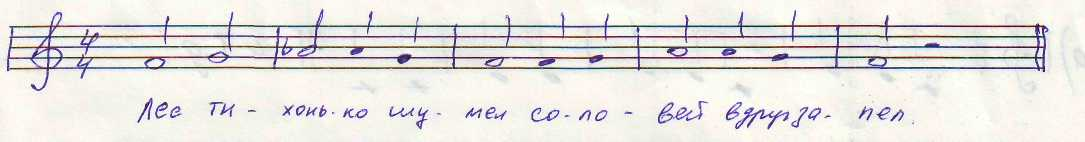 4/4
Лес ти - хонь-ко шу- мел со-ло - вей вдруг за- пел.